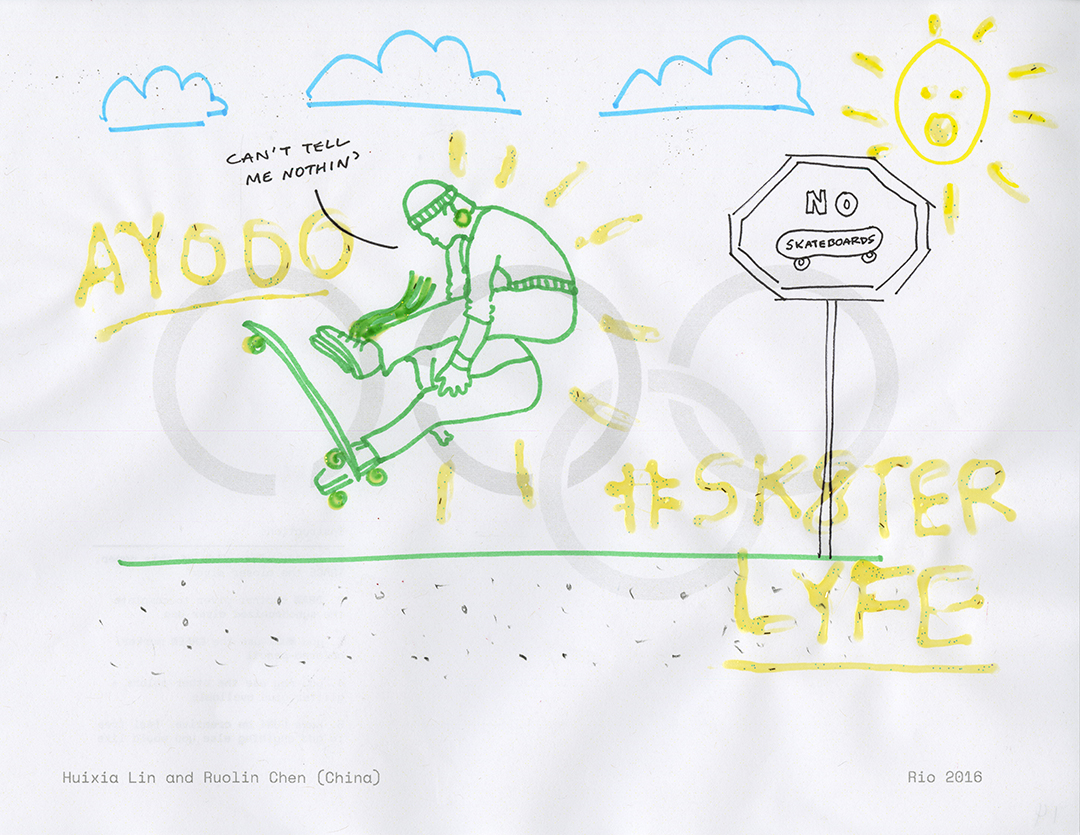 CAN'T TELL
ME NOTHIN'
AYOOO
NO
SKATEBOARDS
#SK8TER
LYFE
Huixia Lin and Ruolin Chen (China)
Rio 2016